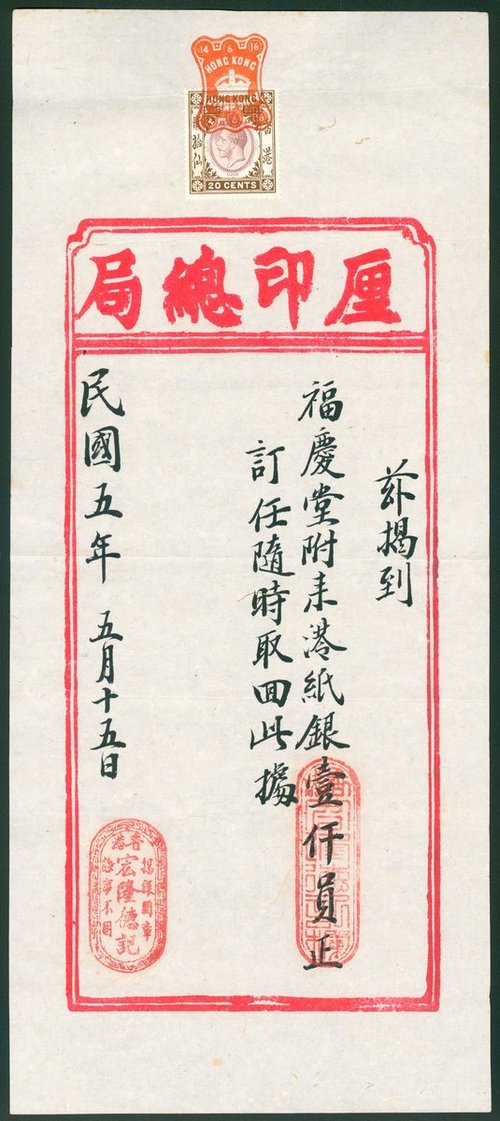 14 6 16
HONG KONG
HONG KONG
20 CENTS
厘印總局
茲揭到
福慶堂附来港紙銀壹仟員正
訂任隨時取回此據
民國五年 五月十五日
香港
宏隆德記